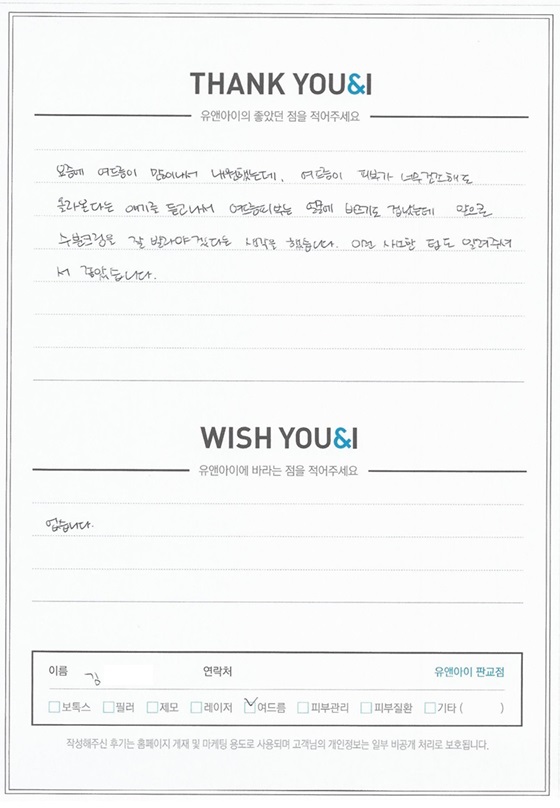 THANK YOU&I
유앤아이의 좋았던 점을 적어주세요
요즘에 여드름이 많이나서 내원했는데, 여드름이 피부가 너무건조해도
올라온다는 얘기를 듣고나서 여드름피부는 때문에 바르기도 겁났는데 앞으로
수분크림을 잘 발라야겠다는 생각을 했습니다. 이런 사소한 팁도 알려주셔
서 좋았습니다.
WISH YOU&I
유앤아이에 바라는 점을 적어주세요
없습니다.
이름 김 연락처 유앤아이 판교점
보톡스 필러 제모 레이저 여드름 피부관리 피부질환 기타 ( )
작성해주신 후기는 홈페이지 게재 및 마케팅 용도로 사용되며 고객님의 개인정보는 일부 비공개 처리로 보호됩니다.